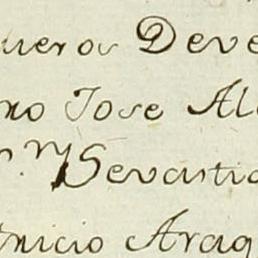 queros Deve
no Jose Al
n Sevastia
tricio Arag